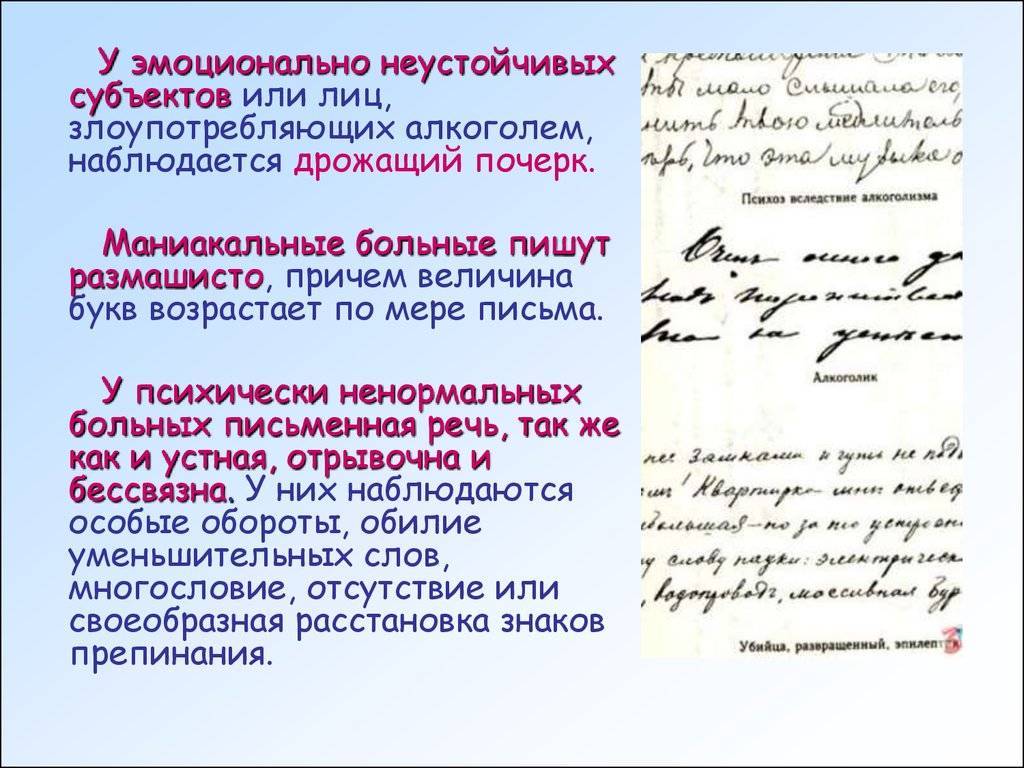 У эмоционально неустойчивых
субъектов или лиц,
злоупотребляющих алкоголем,
наблюдается дрожащий почерк.
Маниакальные больные пишут
размашисто, причем величина
букв возрастает по мере письма.
У психически ненормальных
больных письменная речь, так же
как и устная, отрывочна и
бессвязна. У них наблюдаются
особые обороты, обилие
уменьшительных слов,
многословие, отсутствие или
своеобразная расстановка знаков
препинания.
ты мало слышала его,
нить твою
что эта музыка
Психоз вследствие алкоголизма
Очень много
на
Алкоголик
замками и чуть не
Квартирка
большая-по за то
слову науки: электрическ
водопроводъ, массивная бур
Убийца, развращенный, эпилептик